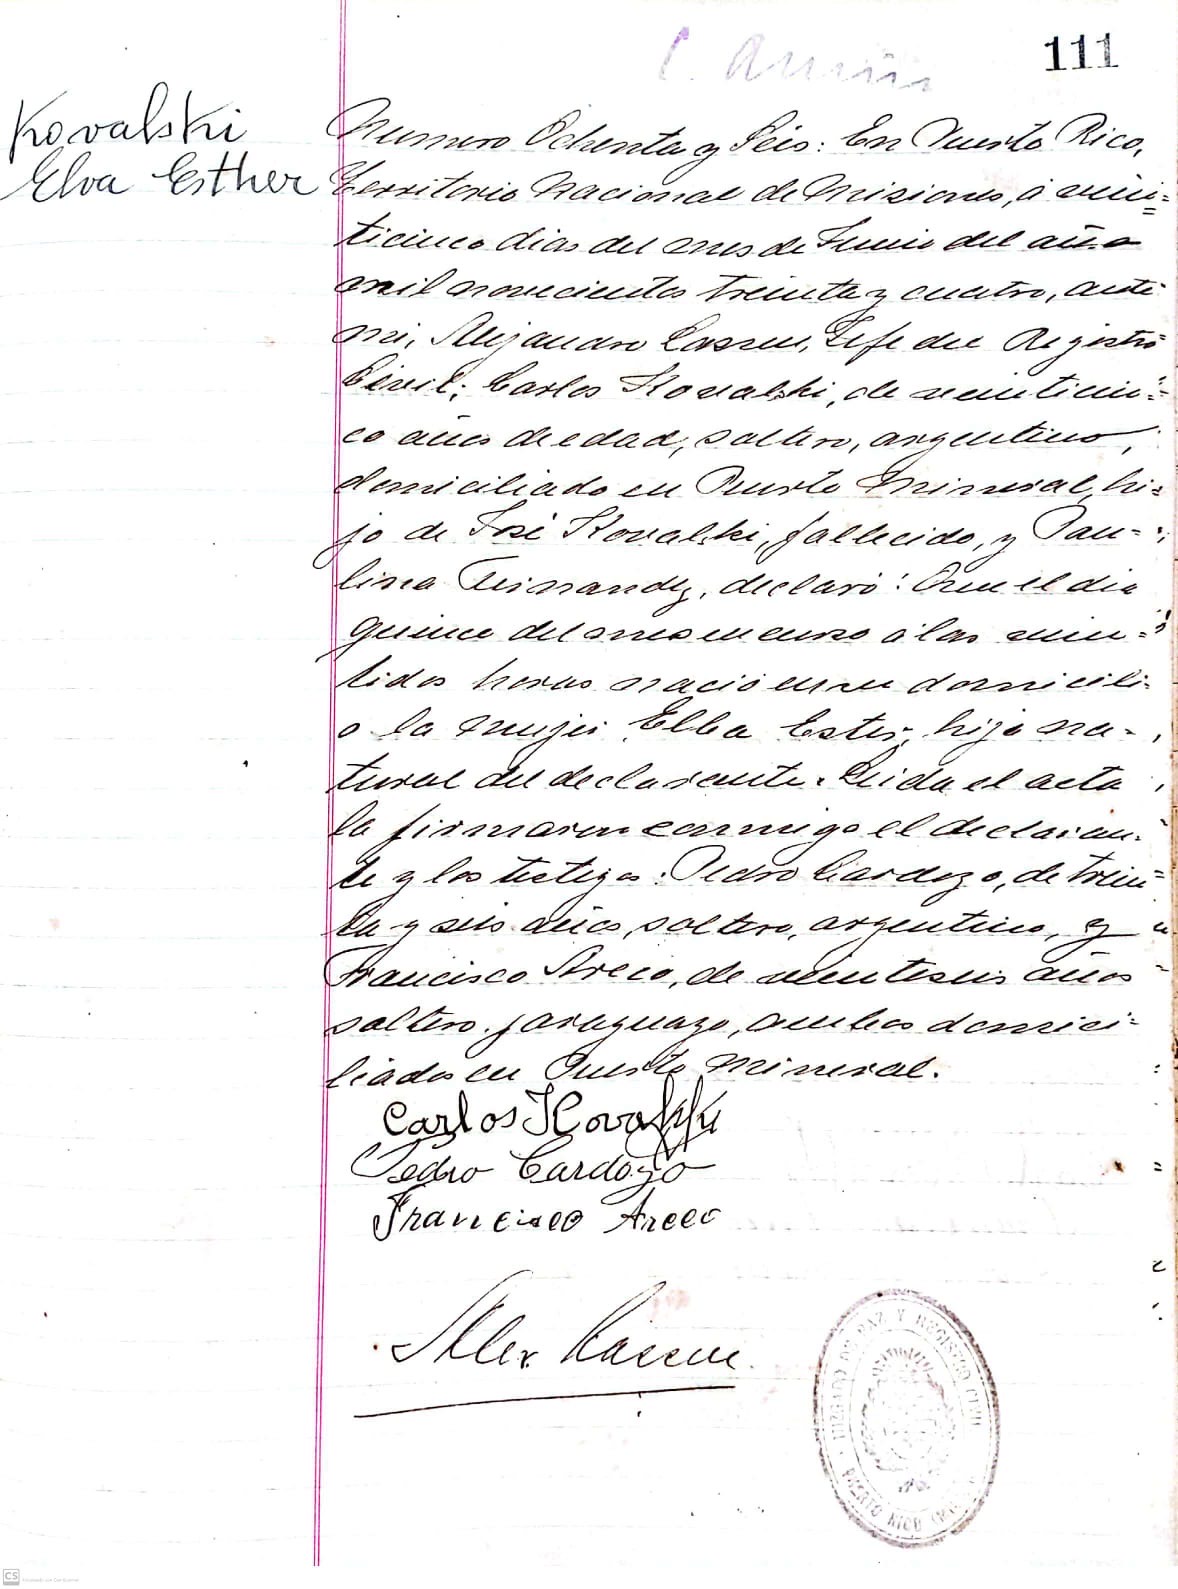 111
Kovalski
Elva Esther
Numero Ochenta y Séis: En Puerto Rico,
Territorio Nacional de Misiones, á vein=
ticinco dias del mes de Junio del año
mil novecientos treinta y cuatro, ante
mi, Alejandro Lassen, Jefe del Registro
Civil; Carlos Kovalski, de veinticin=
co años de edad, soltero, argentino,
domiciliado en Puerto Mineral, hi=
jo de José Kovalski, fallecido, y Pau=
lina Fernandez, declaró: Que el dia
quince del mes en curso á las vein=
tidos horas nació en su domicili=
o la mujer Elba Ester, hija na=
tural del declarante. Leida el acta
la firmaron conmigo el declaran=
te y los testigos: Pedro Cardozo, de trein=
ta y seis años, soltero, argentino, y
Francisco Areco, de veinteseis años
soltero, paraguayo, ambos domici=
liados en Puerto Mineral.
Carlos Kovalski
Pedro Cardozo
Francisco Areco
Alex Lassen
JUZGADO DE PAZ Y REGISTRO CIVIL
PUERTO RICO
CS